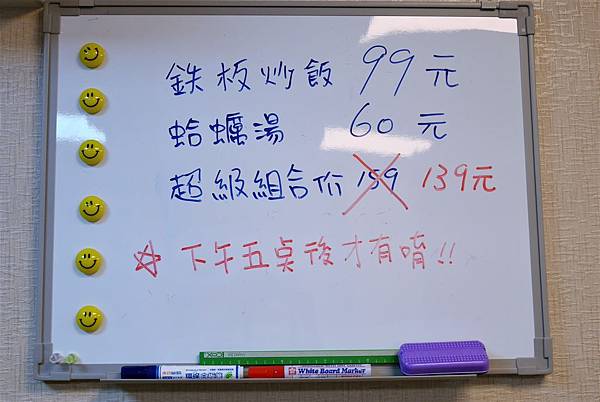 鉄板炒飯 99元
蛤蠣湯 60元
超級組合价 159 139元
☆下午五桌後才有唷!!
White Board Marker